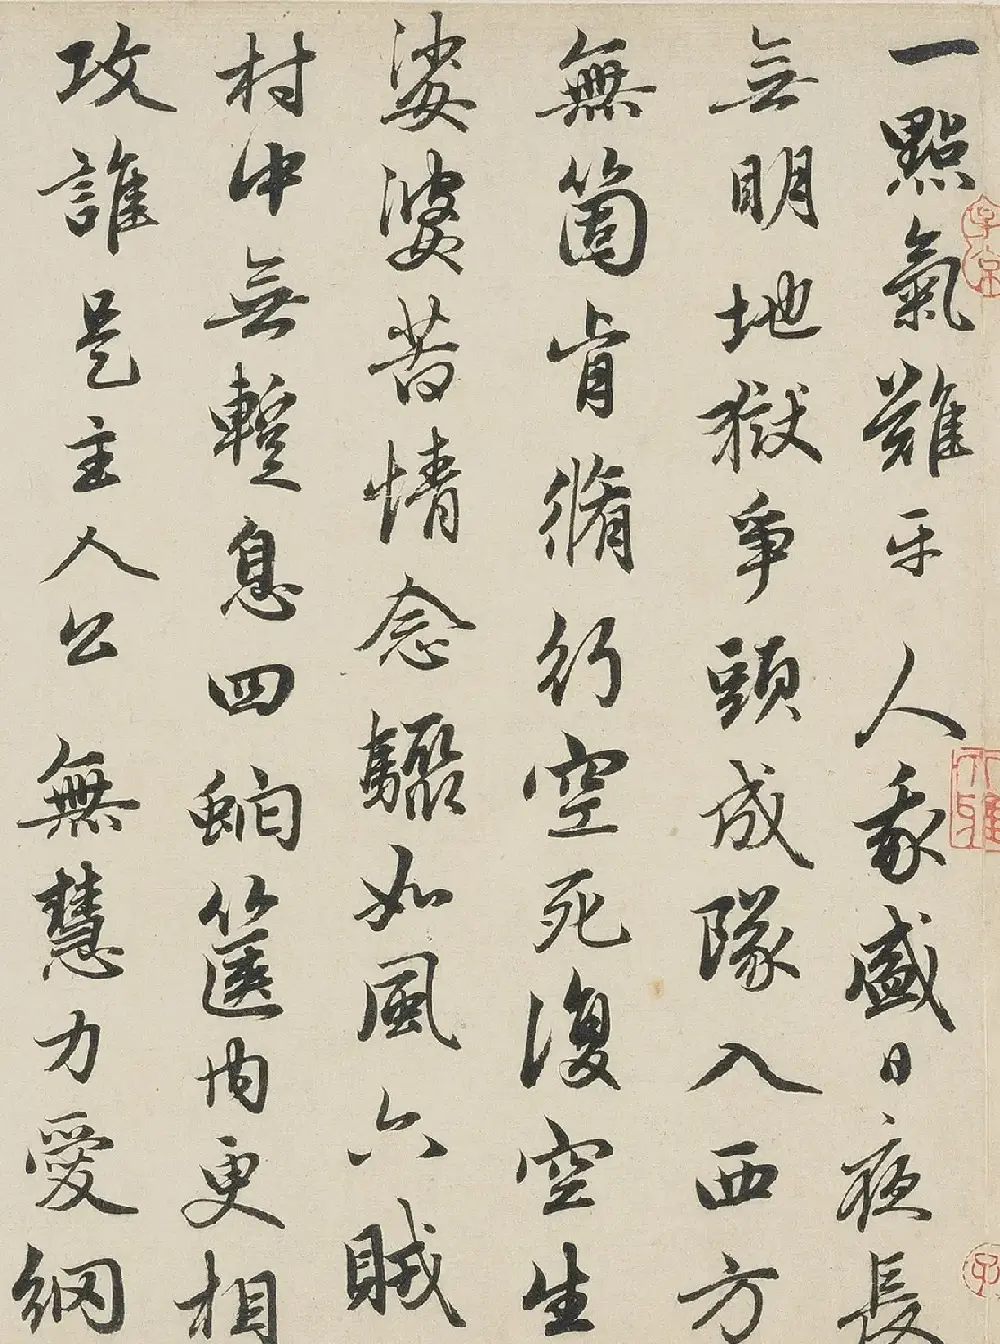 一點氣難平人我盛日夜長
無明地獄爭頭成隊入西方
無箇肯脩行空死復空生
娑婆苦情念驟如風六賊
村中無暫息四蛇篋内更相
攻誰是主人公無慧力愛網